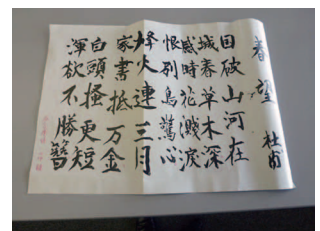 春望 杜甫
国破山河在
城春草木深
感時花濺涙
恨別鳥驚心
烽火連三月
家書抵万金
白頭搔更短
渾欲不勝簪